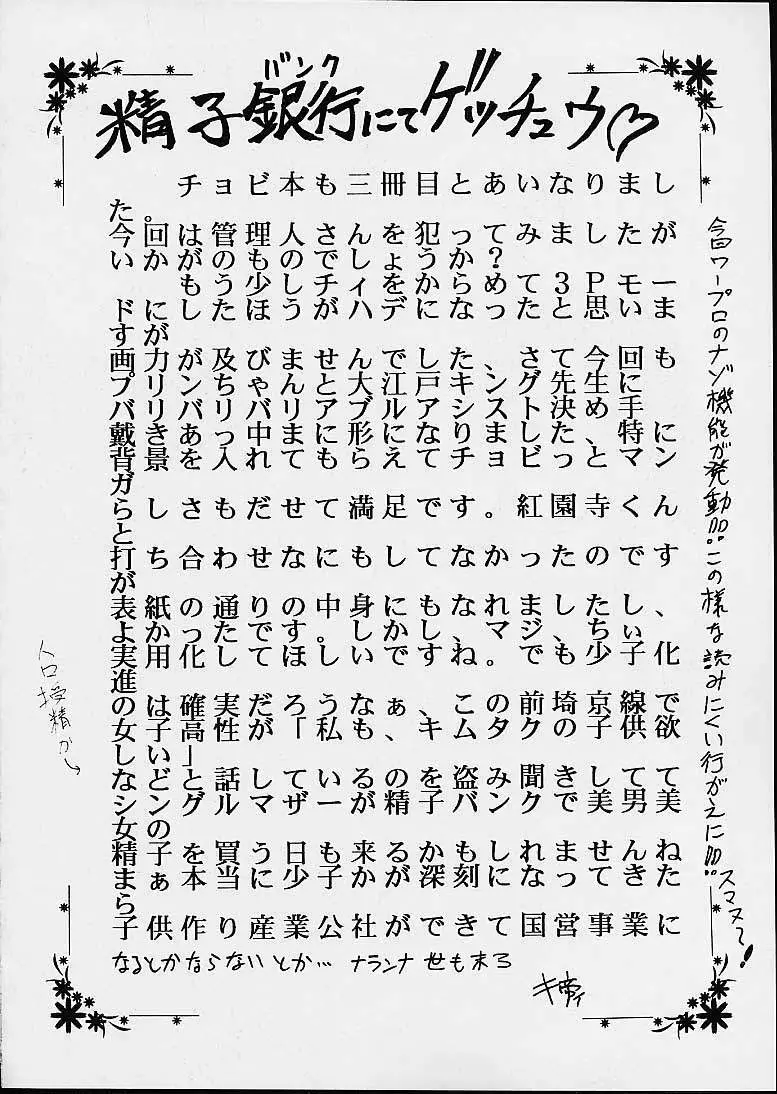 精子銀行にてゲッチュウ♡
バンク
チョビ本も三冊目とあいなりまし
た。
今回は管理人さんを犯ってみましたが
いかがのものでしょうか?
もう少しチィをからめて3Pモー
ドにしたほうがハデになったと思いま
すが
画力が及びませんでした、さて今回も
プリンちゃんと大江戸キシグ先生に
バリバリバリアブルアシスト決め手
戴きあっ中まに形になりました、特に
背景を入れてもらえてチョビっとマン
ガ
らしさもだせて満足です。紅園寺くん
と
打ち合わせなにもしてなかったのです
が
表紙の通りの中身にもなれましたし、
よかったです。しかし、マジ、ちぃ
実用化してほしいですね。でも少子化
進は確実だろうなぁ、この前埼京線で
の
女子高性が「私も、キムタクの子供欲
しい」話してるのを盗み聞きして
などと
シングルマザー が精子バンクで美男美
女の
精子を買う日も来るかもしれませんね
まぁ本当に少子が深刻になってきた
ら
子供作り産業公社ができて国営事業に
なるとかならないとか… ナランナ 世も末ろ
今回ワープロのナゾ機能が発動!!!この様な読みにくい行がえに!!!スマヌ〜!
人口授精か